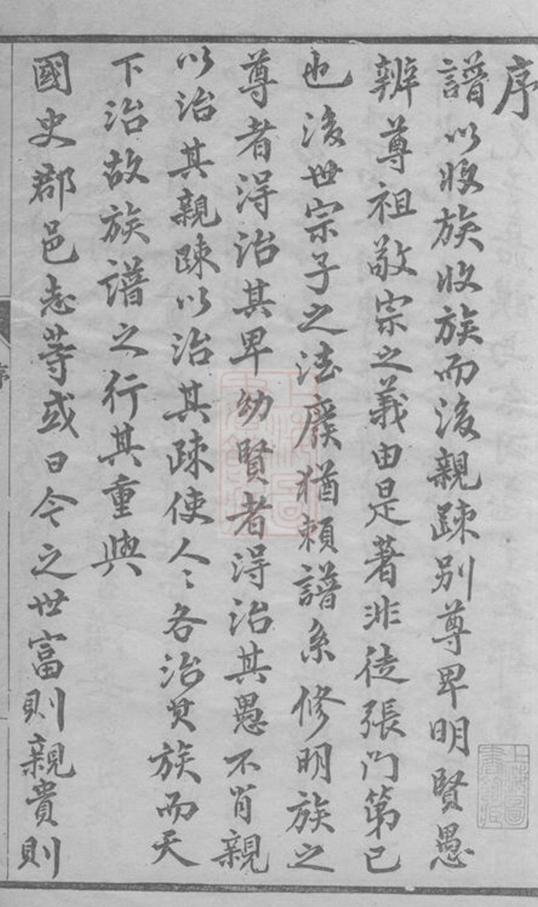 序
譜以收族收族而後親疎別尊卑明賢愚
辨尊祖敬宗之義由是著非徒張門第已
也後世宗子之法廢猶賴譜系修明族之
尊者得治其卑幼賢者得治其愚不肖親
以治其親疎以治其疎使人〻各治其族而天
下治故族譜之行其重與
國史郡邑志等或曰今之世富則親貴則
序